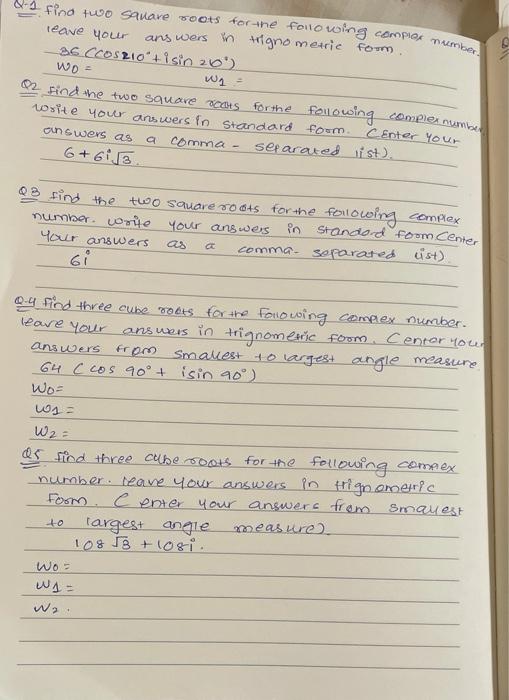 Q-1 find two square roots for the following complex number.
leave your answers in trignometric form.
36 (cos210° + isin 210°)
W0 =
W1 =
Q2 find the two square roots for the following complex number
write your answers in standard form. (Enter your
answers as a comma - separated list).
6+6i√3.
Q3 find the two square roots for the following complex
number. write your answers in standard form (enter
your answers as a comma- separated list)
6i
Q-4 find three cube roots for the following complex number.
leave your answers in trignometric form. (enter your
answers from smallest to largest angle measure
64 (cos 90° + isin 90°)
W0=
W1 =
W2 =
Q5 find three cube roots for the following complex
number. leave your answers in trignometric
form. (enter your answers from smallest
to largest angle measure)
108 √3 + 108i.
W0 =
W1 =
W2 .